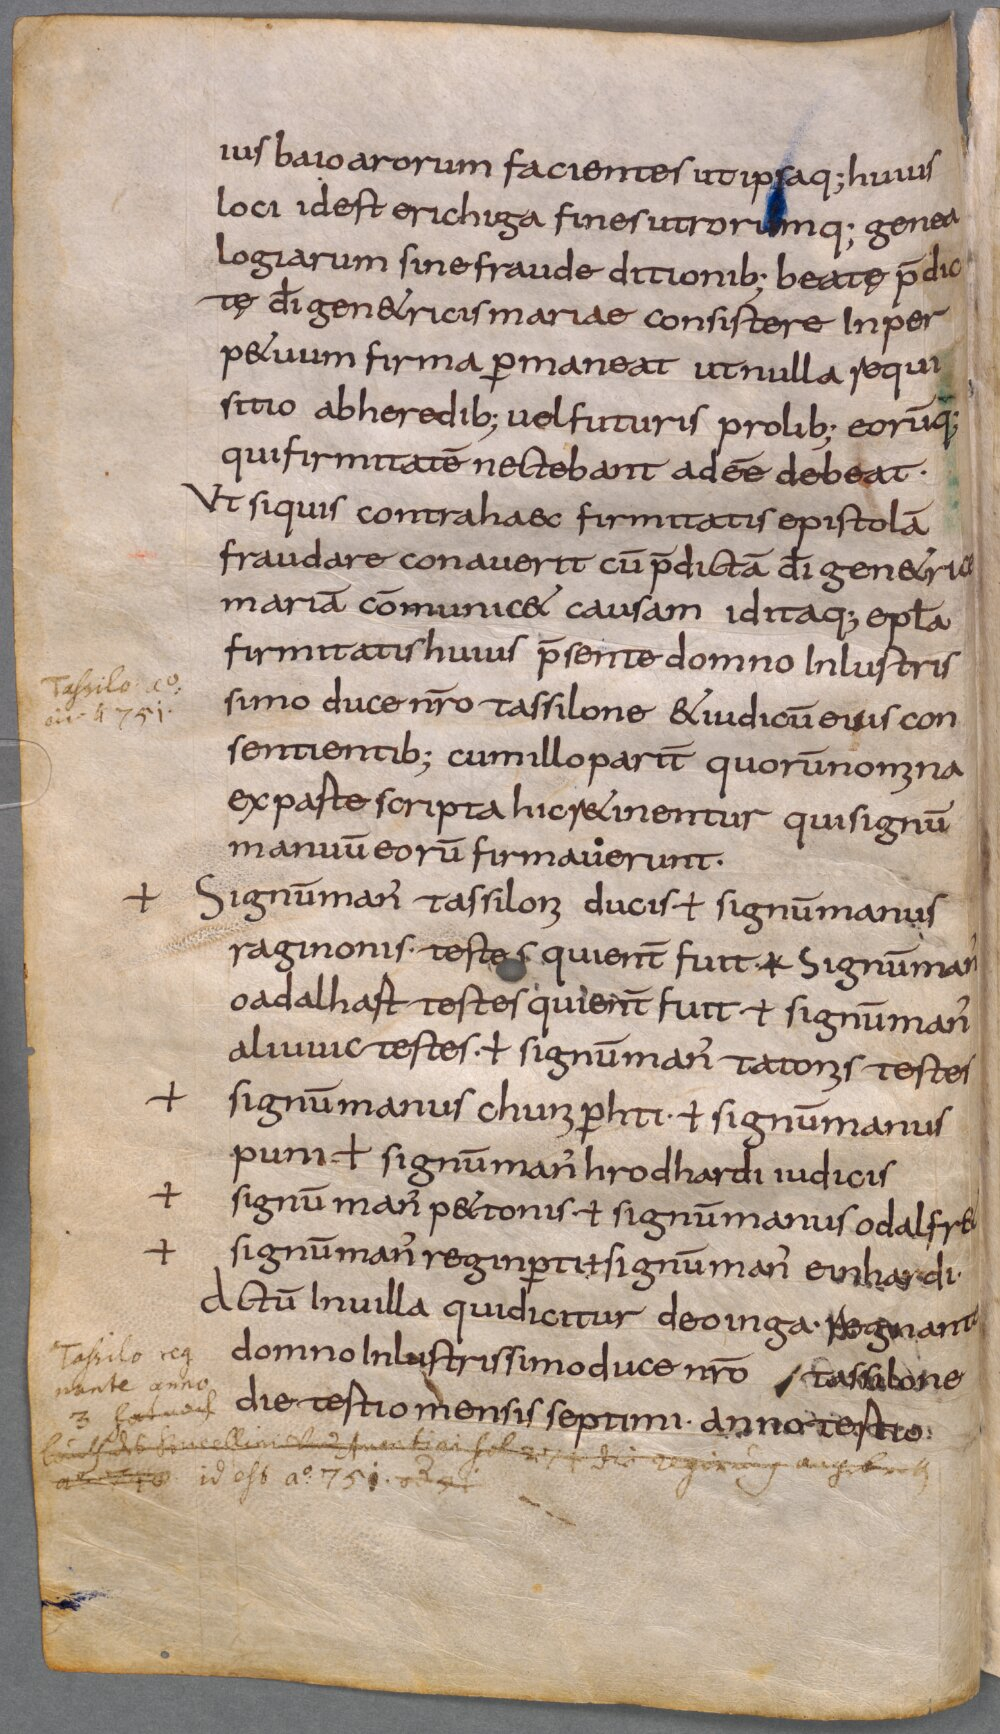 ius baioarorum facientes ut ipsaq; huius
loci id est erichiga fines utrorumq; genea
logiarum sine fraude ditionib; beatę p̄dic
tę dī gen&ricis mariae consistere In per
p&uum firma p̱maneat ut nulla requi
sitio ab heredib; uel futuris prolib; eorūq;
qui firmitatē nectebant adeē debeat·
Ut si quis contra haec firmitatis epistolā
fraudare conauerit cū p̄dictā dī gen&rice
mariā cōmunic& causam id itaq; epła
firmitatis huius p̄sente domno Inlustris
simo duce nr̄o tassilone & iudicū eius con
sentientib; cum illo parit̄ quorū nomina
ex paste scripta hic r&inentur qui signū
manuū eorū firmauerunt·
+ Signū man̄ tassiloni ducis + signū manus
raginonis· testes quient̄ fuit· + Signū man̄
oadalhast testes quient̄ fuit + signū man̄
aliuuic testes· + signū man̄ tatonis testes
+ signū manus chunip̱hti· + signū manus
puni + signū man̄ hrodhardi iudicis
+ signū man̄ p&tonis + signū manus odalfr&
+ signū man̄ reginp̱ti + signū man̄ einhardi·
Actū In uilla qui dicitur deoinga· Regnante
domno Inlustrissimo duce nr̄o tassilone
die testio mensis septimi· anno testio·
Tassilo aº
751·
Tassilo reg
nante anno
3
id est aº· 751·